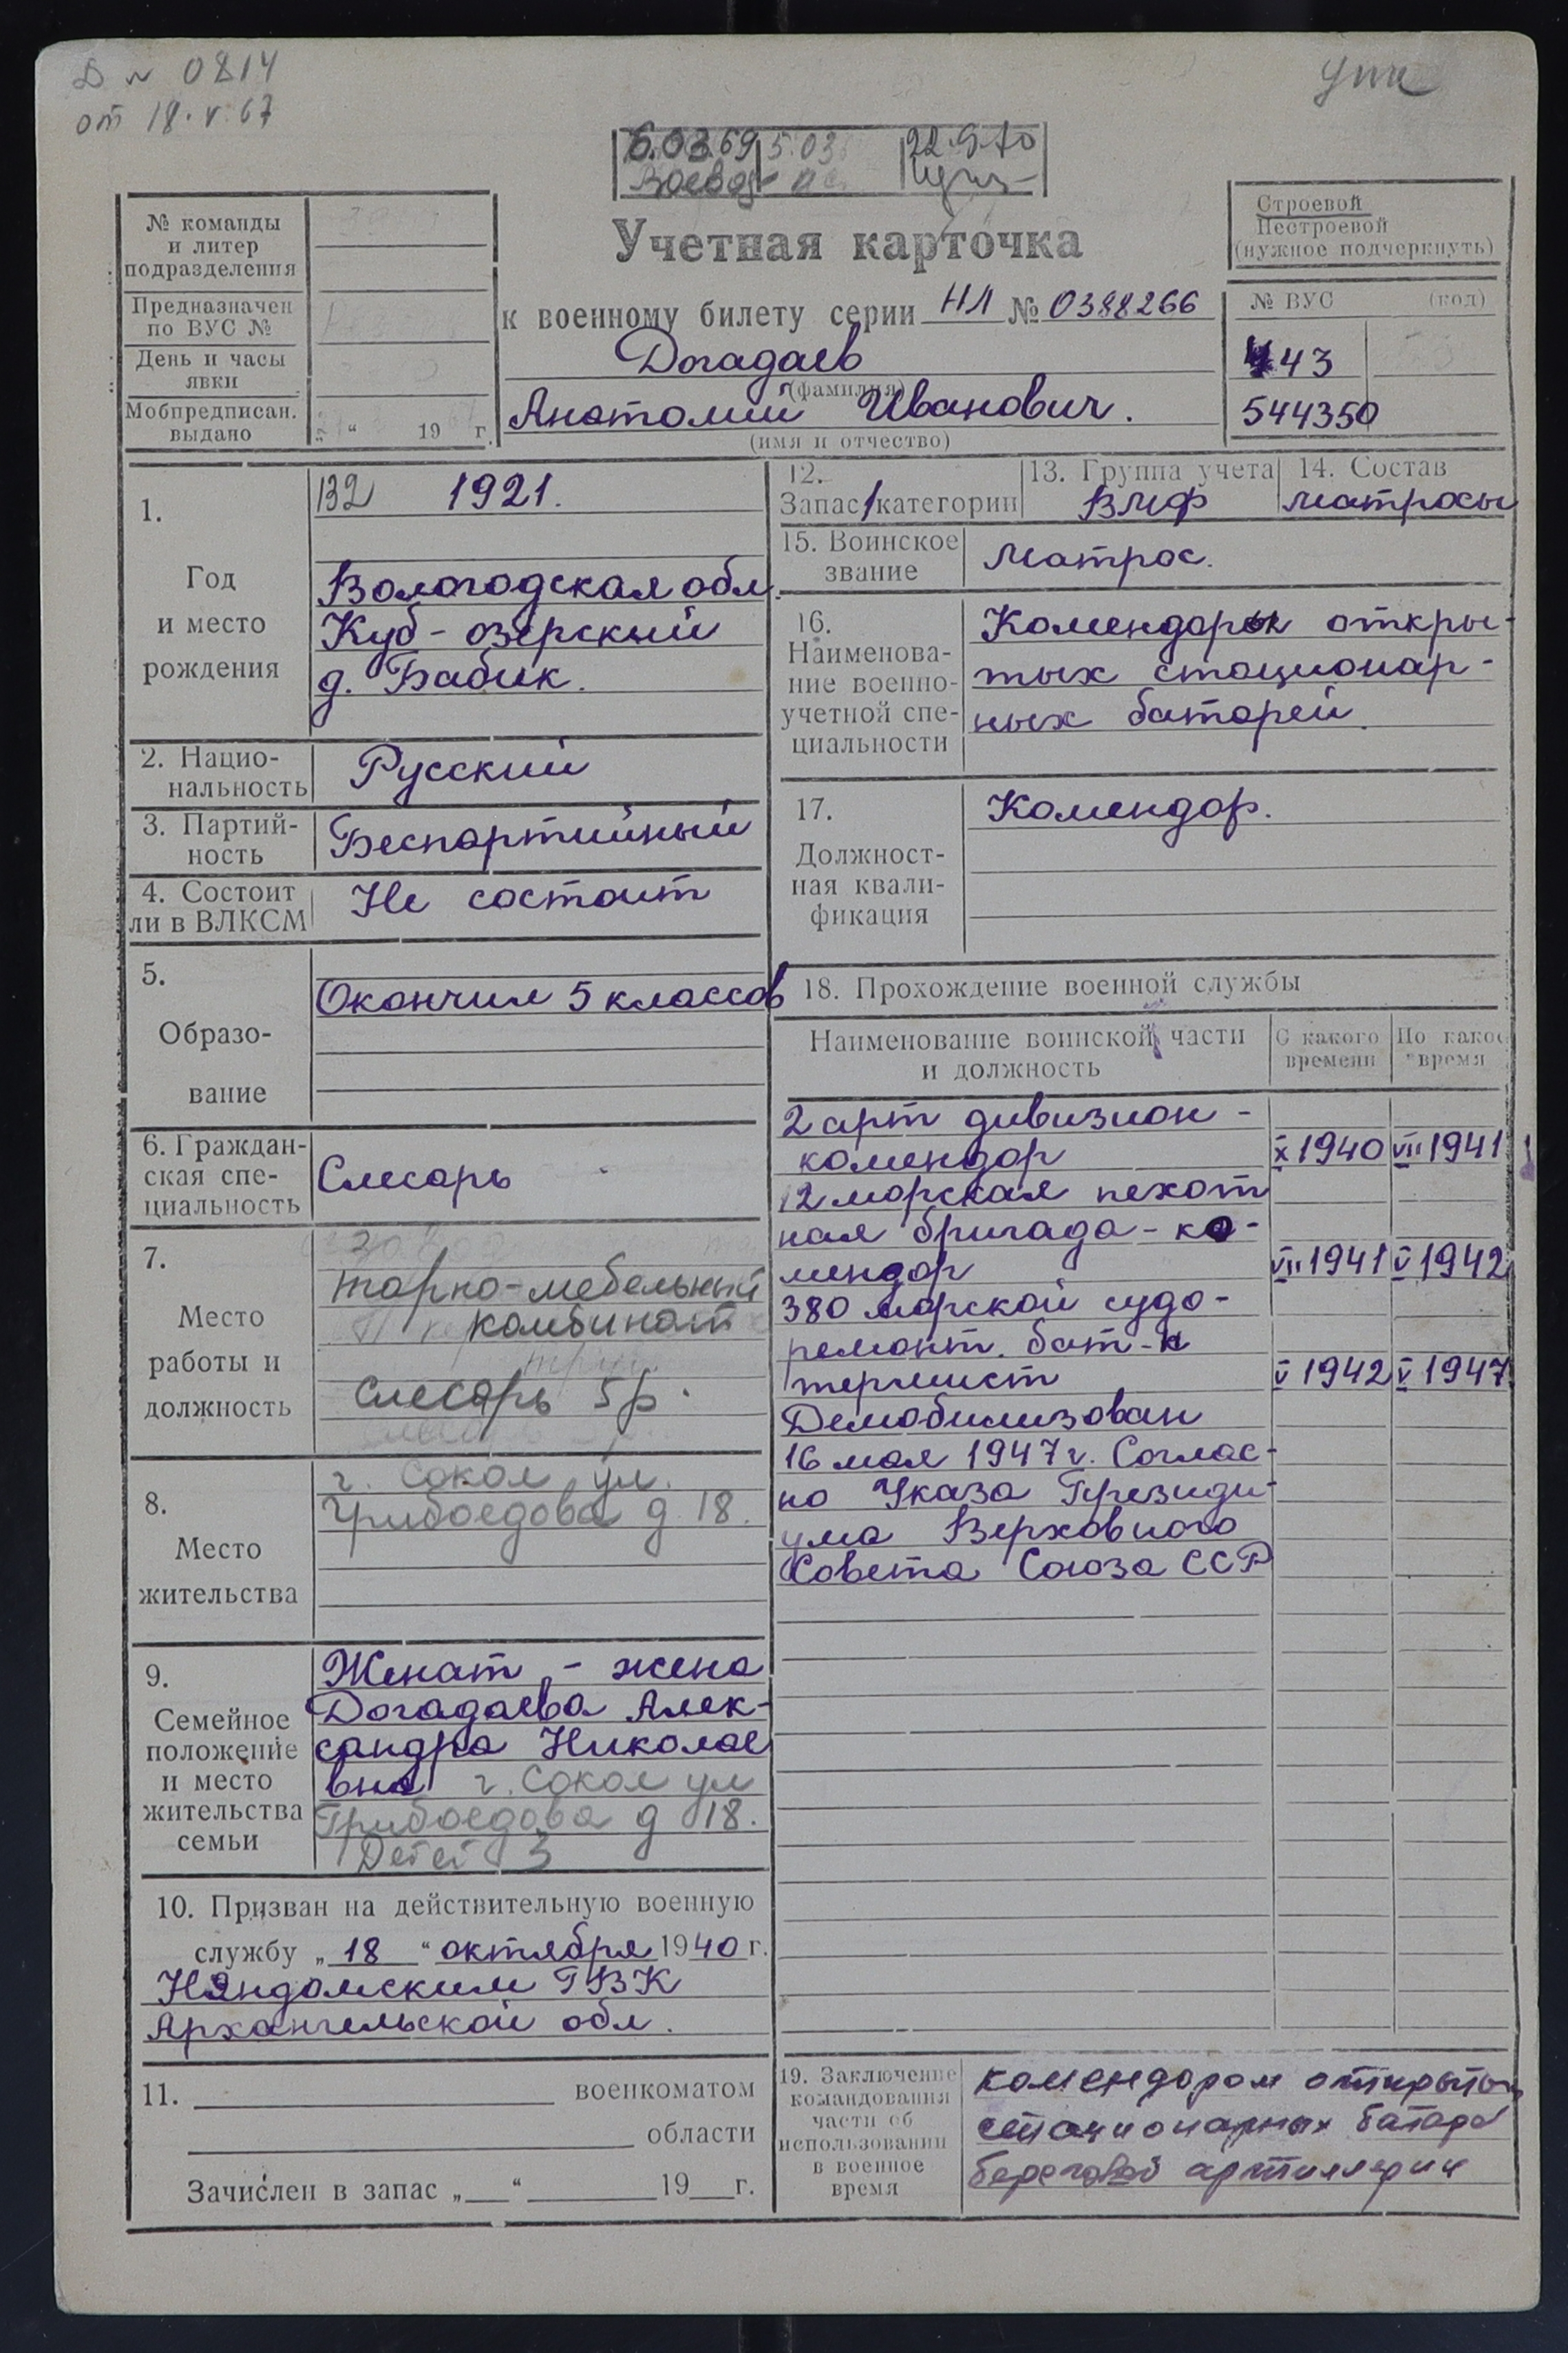 Д № 0814
от 18.V.67
6.03.69 5.03 22.9.70
Учетная карточка
к военному билету серии НЛ № 0388266
Догадаев
(фамилия)
Анатолий Иванович.
(имя и отчество)
№ команды
и литер
подразделения
Предназначен
по ВУС №
День и часы
явки
Мобпредписан.
выдано
„ “ 19 г.
Строевой
Нестроевой
(нужное подчеркнуть)
№ ВУС (код)
443
544350
1.
Год
и место
рождения
132 1921.
Вологодская обл.
Куб-озерский
д. Бабик.
2. Нацио-
нальность
Русский
3. Партий-
ность
Беспартийный
4. Состоит
ли в ВЛКСМ
Не состоит
5.
Образо-
вание
Окончил 5 классов
6. Граждан-
ская спе-
циальность
Слесарь
7.
Место
работы и
должность
тарно-мебельный
комбинат
слесарь 5р.
8.
Место
жительства
г. Сокол ул.
Грибоедова д 18.
9.
Семейное
положение
и место
жительства
семьи
Женат - жена
Догадаева Алек-
сандра Николае
вна г. Сокол ул
Грибоедова д 18.
Детей 3
10. Призван на действительную военную
службу „18“ октября 1940 г.
Няндомским РВК
Архангельской обл.
11. военкоматом
области
Зачислен в запас „ “ 19 г.
12.
Запас 1 категории
13. Группа учета
ВМФ
14. Состав
матросы
15. Воинское
звание
Матрос.
16.
Наименова-
ние военно-
учетной спе-
циальности
Комендоры откры-
тых стационар-
ных батарей.
17.
Должност-
ная квали-
фикация
Комендор.
18. Прохождение военной службы
Наименование воинской части
и должность
С какого
времени
По какое
время
2 арт дивизион -
комендор X 1940 VII 1941
12 морская пехот
ная бригада - ко-
мендор VII 1941 V 1942
380 морской судо-
ремонт. бат-н
термист V 1942 V 1947
Демобилизован
16 мая 1947 г. Соглас-
но Указа Президи-
ума Верховного
Совета Союза ССР
19. Заключение
командования
части об
использовании
в военное
время
комендором открытых
стационарных батарей
береговой артиллерии